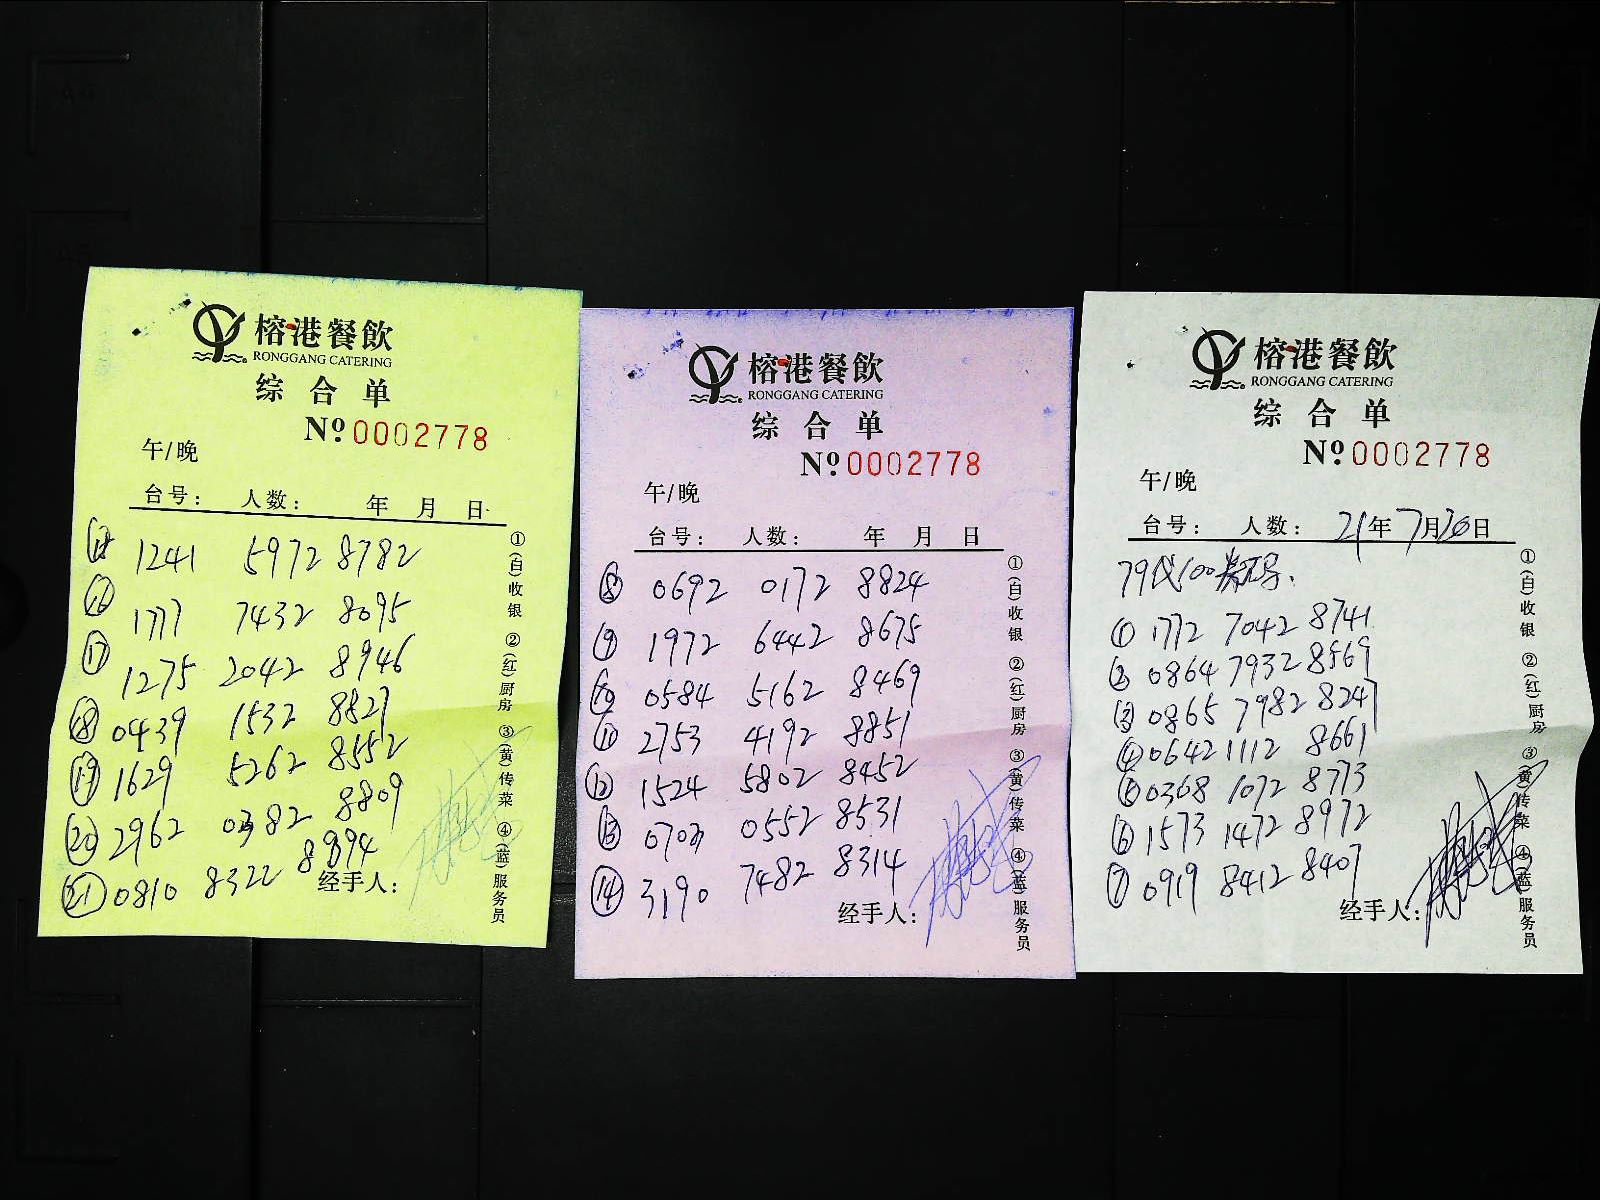 榕港餐飲
RONGGANG CATERING
综合单
№0002778
午/晚
台号： 人数： 年 月 日
1241 5972 8782
⑯ 1777 7432 8095
⑰ 1275 2042 8946
⑱ 0439 1532 8827
⑲ 1629 5262 8552
⑳ 2962 0382 8809
㉑ 0810 8322 8894
经手人：
①(白)收银 ②(红)厨房 ③(黄)传菜 ④(蓝)服务员
榕港餐飲
RONGGANG CATERING
综合单
№0002778
午/晚
台号： 人数： 年 月 日
⑧ 0692 0172 8824
⑨ 1972 6442 8675
⑩ 0584 5162 8469
⑪ 2753 4192 8851
⑫ 1524 5802 8452
⑬ 0703 0552 8531
⑭ 3190 7482 8314
经手人：
①(白)收银 ②(红)厨房 ③(黄)传菜 ④(蓝)服务员
榕港餐飲
RONGGANG CATERING
综合单
№0002778
午/晚
台号： 人数： 21年7月26日
79代100券码.
① 1772 7042 8741
② 0864 7932 8569
③ 0865 7982 8247
④ 0642 1112 8661
⑤ 0368 1072 8773
⑥ 1573 1472 8972
⑦ 0919 8412 8407
经手人：
①(白)收银 ②(红)厨房 ③(黄)传菜 ④(蓝)服务员